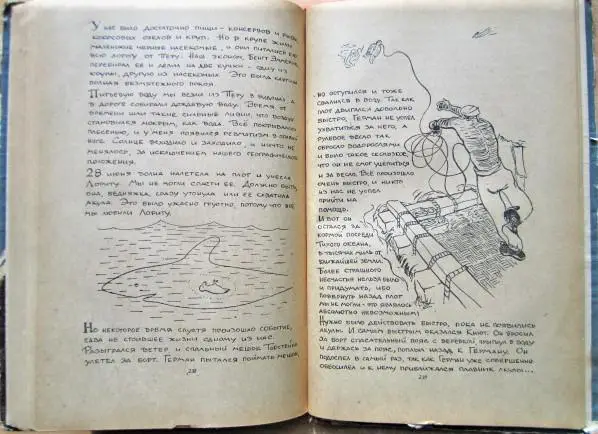 У нас было достаточно пищи - консервов и рыбы,
кокосовых орехов и круп. Но в крупе жили
маленькие черные насекомые, и они питались ею
всю дорогу от Перу. Наш эконом, Бенгт Даниельс.
перебирал её и делил на две кучки - одну из
крупы, другую из насекомых. Это была картина
полная безмятежного покоя.
Питьевую воду мы везли из Перу в бидонах, а
в дороге собирали дождевую воду. Время от
времени шли такие сильные ливни, что воздух
становился мокрым, как вода. Всё покрывалось
плесенью, и у меня появился ревматизм в
боку. Солнце всходило и заходило, и ничто не
менялось, за исключением нашего географического
положения.
28 июня волна налетела на плот и унесла
Лориту. Мы не могли спасти ее. Должно быть,
она, бедняжка, сразу утонула или ее схватила
акула. Это было ужасно грустно, потому что все
мы любили Лориту.
Но некоторое время спустя произошло событие,
едва не стоившее жизни одному из нас.
Разыгрался ветер и спальный мешок Торстейна
улетел за борт. Герман пытался поймать мешок,
231
но оступился и тоже
свалился в воду. Так как
плот двигался довольно
быстро, Герман не успел
ухватиться за него, а
рулевое весло так
обросло водорослями
и было такое скользкое,
что он не смог уцепиться
и за весло. Всё произошло
очень быстро, и никто
из нас не успел
прийти на
помощь.
И вот он
остался за
кормой посреди
Тихого океана,
в тысячах миль от
ближайшей земли.
Более страшного
несчастья нельзя было
и придумать, ибо
повернуть назад плот
мы не могли - это являлось
абсолютно невозможным!
Нужно было действовать быстро, пока не появились
акулы. И самым быстрым оказался Кнют. Он бросил
за борт спасательный пояс с веревкой прыгнул в воду
и держась за пояс, поплыл назад к Герману. Он
подоспел в самый раз, так как Герман уже совершенно
обессилел и к нему приближался плавник акулы...